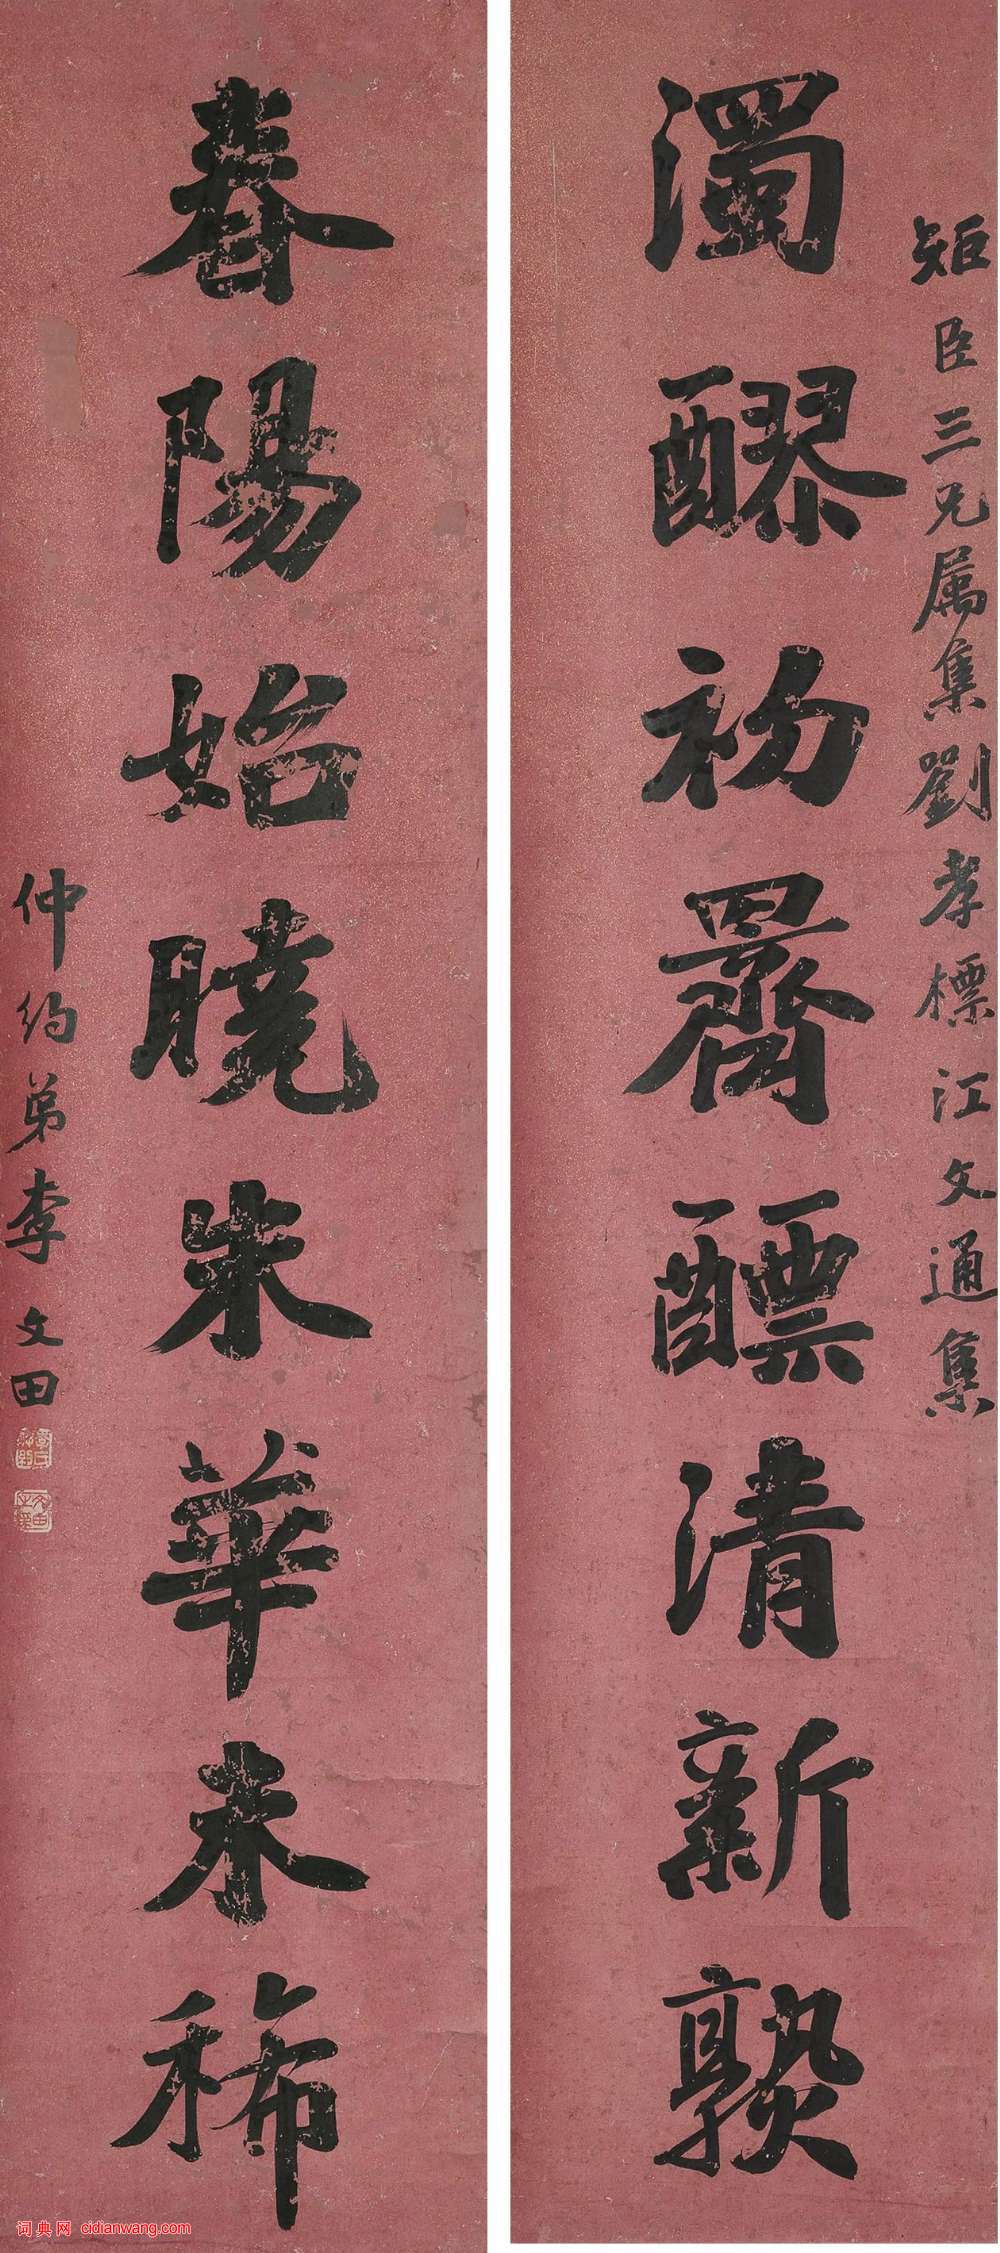 矩臣三兄属集劉孝標江文通集
濁醪初醥清新熟
春陽始曉朱華未稀
仲約弟李文田
词典网 cidianwang.com